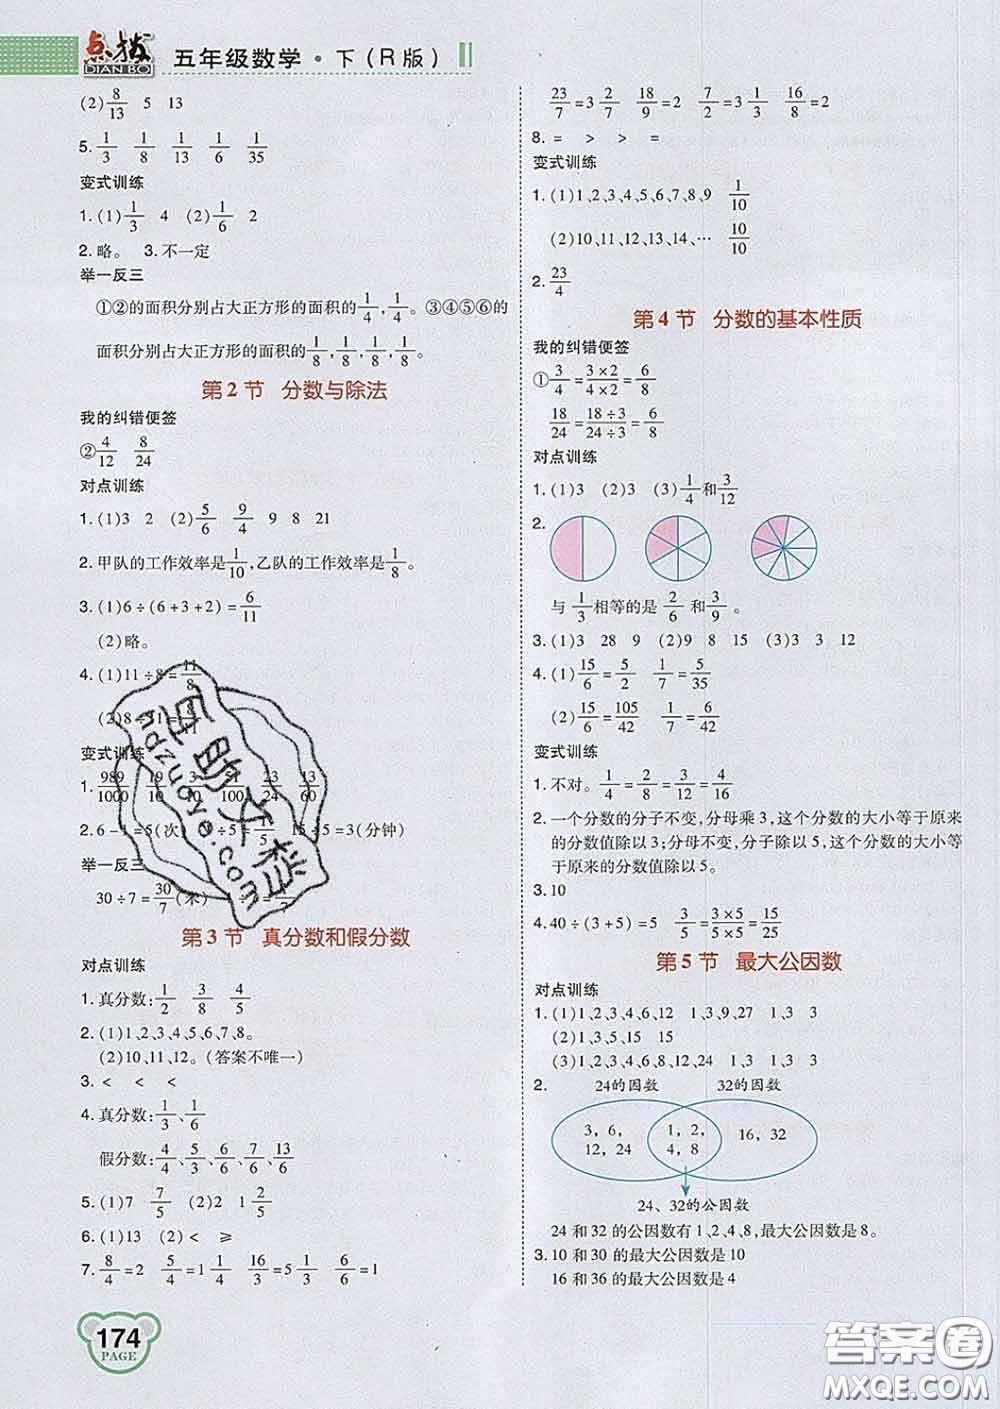 点拨
DIAN BO
五年级数学·下(R版)
(2) 8/13 5 13
5. 1/3 1/8 1/13 1/6 1/35
变式训练
1. (1) 1/3 4 (2) 1/6 2
2. 略。 3. 不一定
举一反三
①②的面积分别占大正方形的面积的 1/4, 1/4。③④⑤⑥的
面积分别占大正方形的面积的 1/8, 1/8, 1/8, 1/8。
第 2 节 分数与除法
我的纠错便签
② 4/12 8/24
对点训练
1. (1)3 2 (2) 5/6 9/4 9 8 21
2. 甲队的工作效率是 1/10,乙队的工作效率是 1/8。
3. (1)6÷(6+3+2)= 6/11
(2)略。
4. (1)11÷8= 11/8
(2)8÷11= 8/11
变式训练
1. 989/1000 19/10 3/10 51/100 23/24 13/60
2. 6-1=5(次) ÷5= /5 15÷5=3(分钟)
举一反三
30÷7= 30/7(米)
第 3 节 真分数和假分数
对点训练
1. 真分数: 1/2 3/8 4/5
2. (1)1、2、3、4、5、6、7、8。
(2)10、11、12。(答案不唯一)
3. < < <
4. 真分数: 1/3、1/6
假分数: 4/4、5/3、6/6、7/6、13/6
5. (1)7 7/5 (2)2 1 2/5
6. (1)13 (2)< ≥
7. 8/4=2 5/4=1 1/4 16/3=5 1/3 6/6=1
174
PAGE
23/7=3 2/7 18/9=2 7/2=3 1/3 16/8=2
8. = > > =
变式训练
1. (1)1、2、3、4、5、6、7、8、9 1/10
(2)10、11、12、13、14、… 10/10
2. 23/4
第 4 节 分数的基本性质
我的纠错便签
① 3/4 = 3×2/4×2 = 6/8
18/24 = 18÷3/24÷3 = 6/8
对点训练
1. (1)3 (2)3 (3) 1/4 和 3/12
2.
与 1/3 相等的是 2/6 和 3/9 。
3. (1)3 28 9 (2)9 8 15 (3)3 3 12
4. (1) 15/6 = 5/2 1/7 = 5/35
(2) 15/6 = 105/42 1/7 = 6/42
变式训练
1. 不对。1/4 = 2/8 = 3/12 = 4/16
2. 一个分数的分子不变,分母乘 3,这个分数的大小等于原来
的分数值除以 3;分母不变,分子除以 5,这个分数的大小等
于原来的分数值除以 5。
3. 10
4. 40÷(3+5)=5 3/5 = 3×5/5×5 = 15/25
第 5 节 最大公因数
对点训练
1. (1)1、2、3、4、6、12 1、3、9、27 1、3 3
(2)1、3、5、15 15
(3)1、2、3、4、6、8、12、24 1、3 1、3 3
2. 24的因数 32的因数
3, 6, 1, 2, 16, 32
12, 24 4, 8
24、32的公因数
24 和 32 的公因数有 1、2、4、8,最大公因数是 8。
3. 10 和 30 的最大公因数是 10
16 和 36 的最大公因数是 4
百助文档
答案圈
MXQE.COM